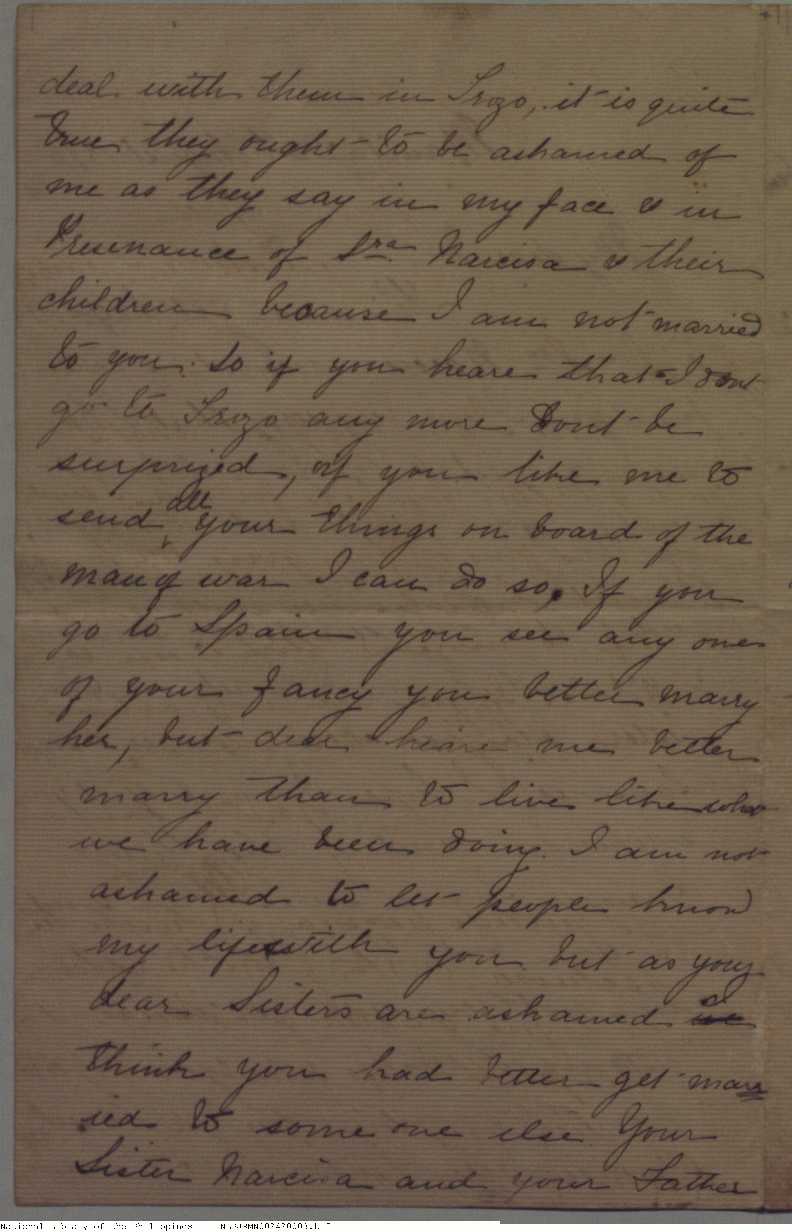 deal with them in Trozo, it is quite
true they ought to be ashamed of
me as they say in my face & in
Presenance of Sra. Narcisa & their
children because I am not married
to you. So if you heare that I dont
go to Trozo any more dont be
surprized, if you like me to
send all your things on board of the
man of war I can do so, If you
go to Spain you see any one
of your fancy you better marry
her, but dear heare me better
marry than to live like what
we have been doing. I am not
ashamed to let people know
my life with you but as your
dear Sisters are ashamed I
think you had better get marr
ied to some one else Your
Sister Narcisa and your Father
National Library of the Philippines